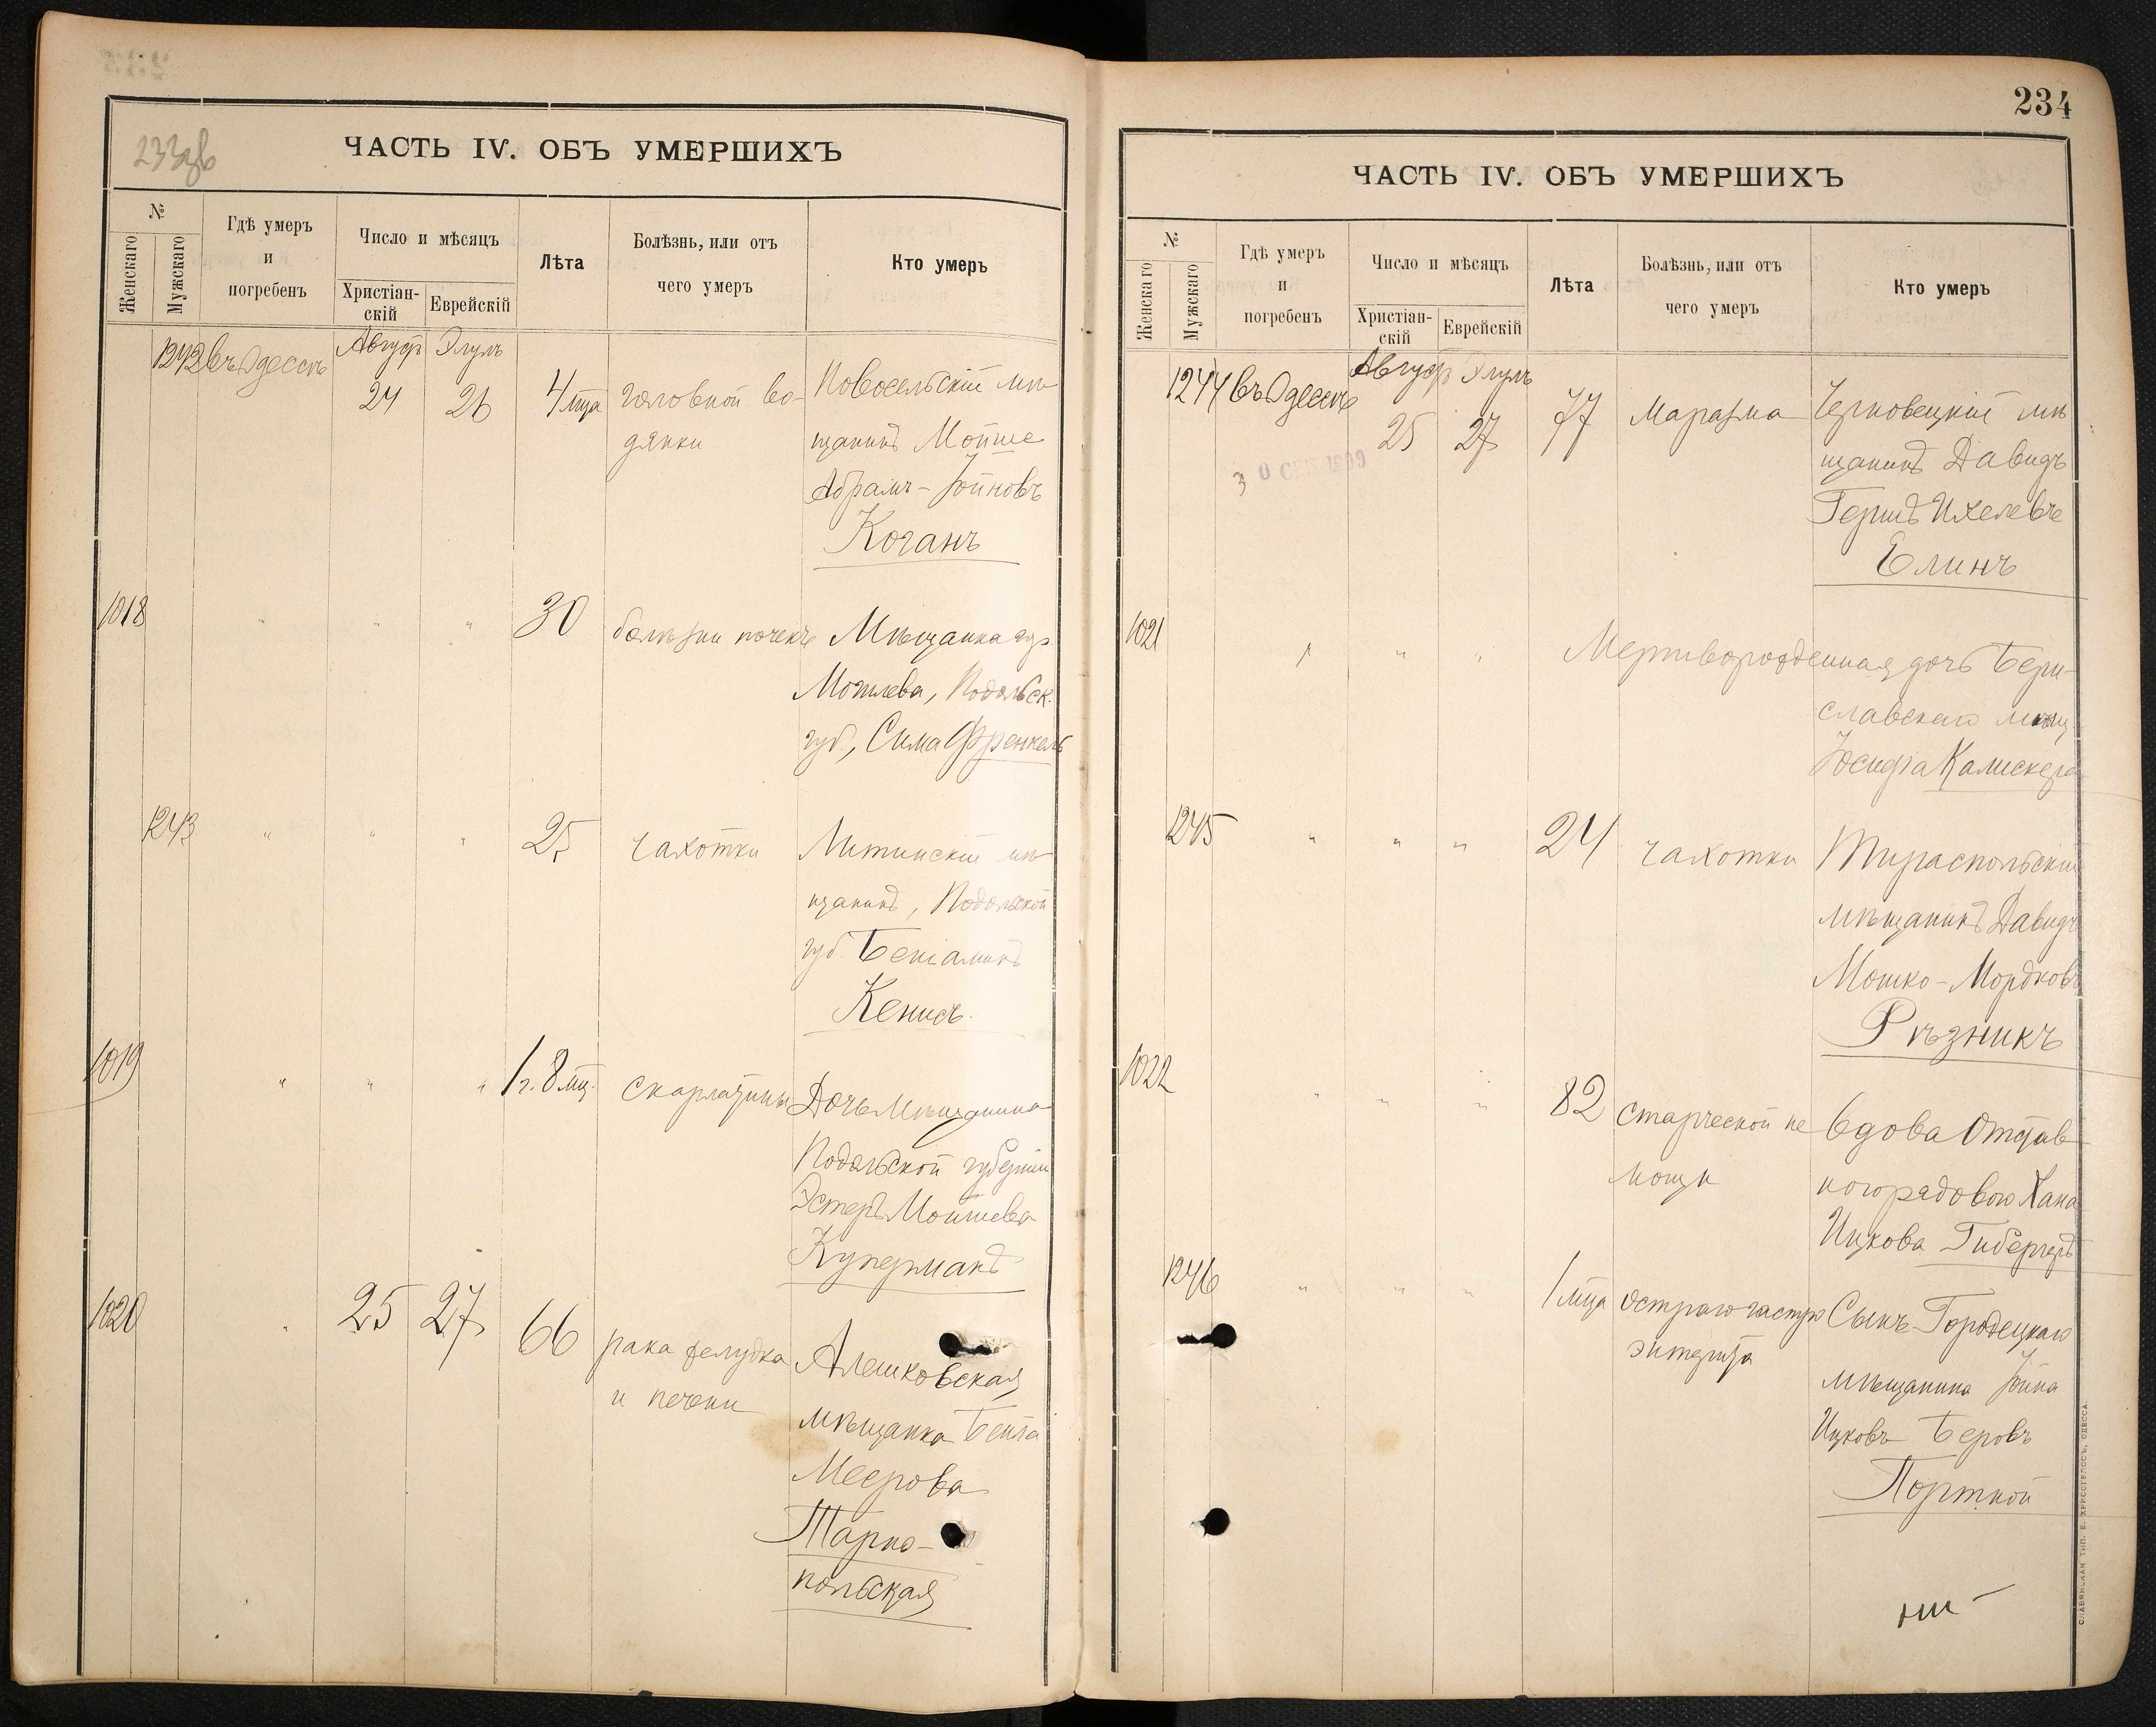 233об
ЧАСТЬ IV. ОБЪ УМЕРШИХЪ
№
Женскаго
Мужскаго
Гдѣ умеръ
и
погребенъ
Число и мѣсяцъ
Христіан-
скій
Еврейскій
Лѣта
Болѣзнь, или отъ
чего умеръ
Кто умеръ
1242 въ Одессѣ Август Элулъ
24 26 4 мца головной во- Новосельскій мѣ
дянки щанинъ Мойше
Абрамъ-Іойновъ
Коганъ
1018 " " " 30 болѣзни почекъ Мѣщанка гр.
Могилева, Подольск.
губ., Сима Френкель
1243 " " " 25 чахотки Литинскій мѣ
щанинъ, Подольской
губ. Беніаминъ
Кенисъ.
1019 " " " 1 г. 8 мц. скарлатины Дочь Мѣщанина
Подольской губерніи
Эстеръ Мойшева
Куперманъ
1020 " 25 27 66 рака желудка Алешковская
и печени мѣщанка Бейла
Меерова
Тарно-
польская
234
ЧАСТЬ IV. ОБЪ УМЕРШИХЪ
№
Женскаго
Мужскаго
Гдѣ умеръ
и
погребенъ
Число и мѣсяцъ
Христіан-
скій
Еврейскій
Лѣта
Болѣзнь, или отъ
чего умеръ
Кто умеръ
1244 въ Одессѣ Август Элулъ
25 27 77 маразма Черновецкій мѣ
щанинъ Давидъ
3 0 СЕН 1909
Гершъ Ихелевъ
Елинъ
1021 " " " Мертворожденная дочь Бери-
славскаго мѣщ
Іосифа Калискера
1245 " " " 24 чахотки Тираспольскій
мѣщанинъ Давидъ
Мошко-Мордковъ
Рѣзникъ
1022 " " " 82 старческой не вдова Отстав
мощи ного рядового Хана
Ицкова Гибергеръ
1246 " " " 1 мца Остраго гастро Сынъ Городецкаго
энтерита мѣщанина Іойна
Ицковъ Беровъ
Портной
СЛАВЯНСКАЯ ТИП. Е. ХРИСОГЕЛОСЪ, ОДЕССА.